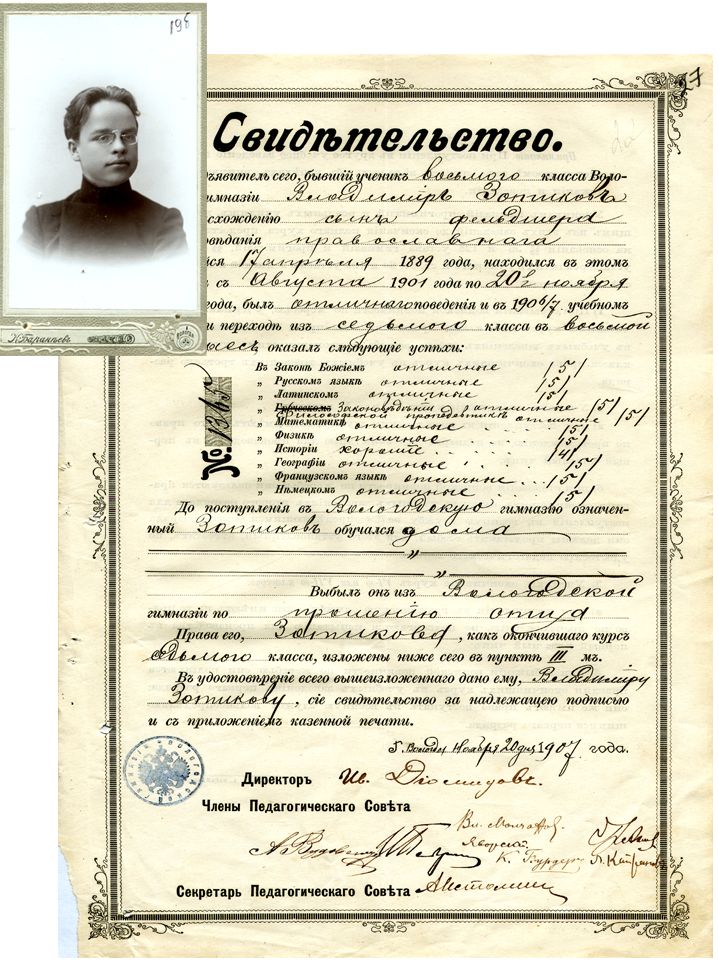 198
17
Свидѣтельство.
ъявитель сего, бывшій ученик восьмого класса Воло-
имназіи Владиміръ Зотиковъ
схожденію сынъ фельдшера
овѣданія православнаго
йся 17 апрѣля 1889 года, находился въ этомъ
съ Августа 1901 года по 20е ноября
года, былъ отличнаго поведенія и въ 1906/7 учебномъ
и переходѣ изъ седьмого класса въ восьмой
оказалъ слѣдующіе успѣхи:
Въ Законѣ Божіемъ отличные /5/
„ Русскомъ языкѣ отличные /5/
„ Латинскомъ отличные /5/
„ Греческомъ Законовѣдѣніи отличные /5/
философской пропедевтикѣ отличные /5/
„ Математикѣ отличные /5/
„ Физикѣ отличные /5/
„ Исторіи хорошіе /4/
„ Географіи отличные /5/
„ Французскомъ языкѣ отличные /5/
„ Нѣмецкомъ отличные /5/
№ 1365
До поступленія въ Вологодскую гимназію означен-
ный Зотиковъ обучался дома
„
„
Выбылъ онъ изъ Вологодской
гимназіи по прошенію отца
Права его, Зотикова, какъ окончившаго курсъ
седьмого класса, изложены ниже сего въ пунктѣ III мъ.
Въ удостовѣреніе всего вышеизложеннаго дано ему, Владиміру
Зотикову, сіе свидѣтельство за надлежащею подписью
и съ приложеніемъ казенной печати.
Г. Вологда ноября 20 дня 1907 года.
Директоръ Ив. Діомидовъ.
Члены Педагогическаго Совѣта
Яворск
Секретарь Педагогическаго Совѣта АИстомин
Н. Баранѣевъ